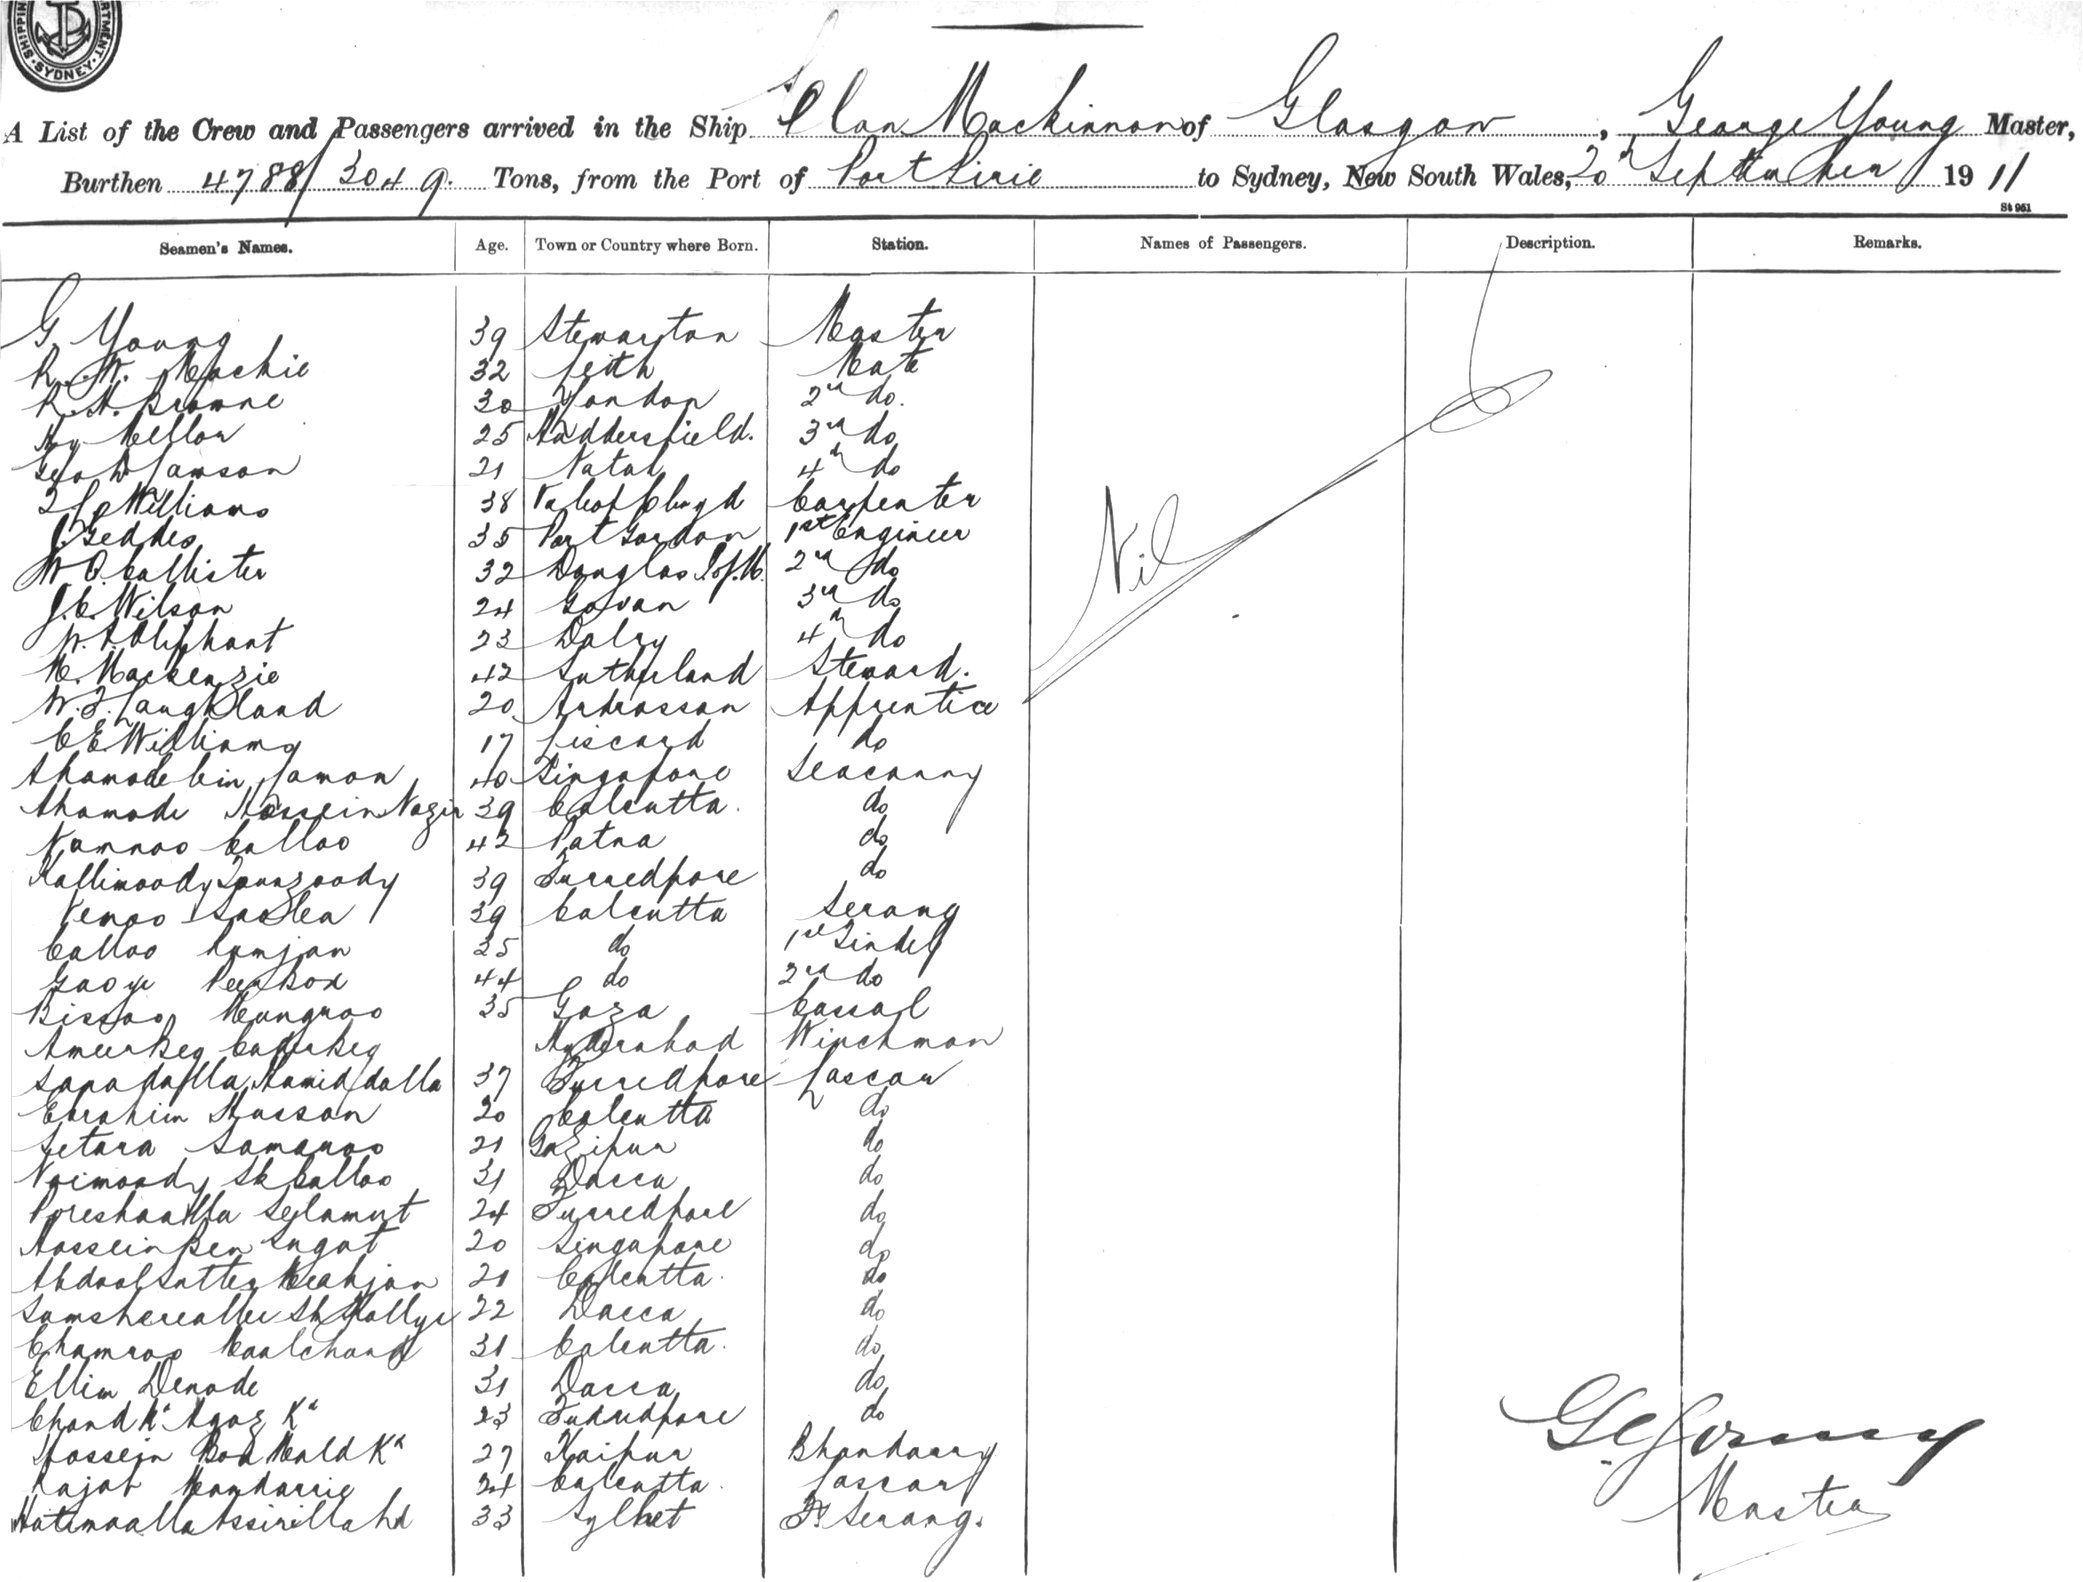 SHIPPING DEPARTMENT. SYDNEY.
A List of the Crew and Passengers arrived in the Ship Clan Mackinnon of Glasgow, George Young Master,
Burthen 4788/3049. Tons, from the Port of Port Pirie to Sydney, New South Wales, 20th September 1911
St 951
Seamen's Names. Age. Town or Country where Born. Station. Names of Passengers. Description. Remarks.
G. Young 39 Stewarton Master
R. W. Mackie 32 Leith Mate
R. H. Browne 30 London 2nd do.
Hy Mellor 25 Huddersfield. 3rd do
Geo W Lawson 21 Natal 4th do
Williams 38 Vale of Clwyd Carpenter
J. Geddes 35 Port Gordon 1st Engineer
W C. Callister 32 Douglas I. of. M. 2nd do
J. C. Wilson 24 Govan 3rd do
W. A. Oliphant 23 Dalry 4th do
M. Mackenzie 42 Sutherland Steward.
W. J. Laughland 20 Ardrossan Apprentice
C E Williams 17 Liscard do
Ahamode bin Jaman 40 Singapore Seacunny
Ahamode Hossein Nazir 39 Calcutta. do
Numnoo Calloo 42 Patna do
Kallimoody 39 Furredpore do
39 Calcutta Serang
Calloo Rumjan 35 do 1st Tindel
Peer Box 44 do 2nd do
Bissoo Mungroo 35 Gaza Cassal
Ameer Beg Cader Beg Hyderabad Winchman
Hamiddalla 37 Furredpore Lascar
Ebrahim Hassan 20 Calcutta do
Setara Samaroo 21 Gazipur do
Noimoody Sk Calloo 31 Dacca do
Poreshaalla Seylamut 24 Furredpore do
Hossein Ben Sugat 20 Singapore do
Abdool Sutter Meahjan 21 Calcutta. do
Samshereallee Sk 22 Dacca do
Chamroo Moolchand 31 Calcutta. do
Ellim Denode 31 Dacca do
Chand Kn Agaz Kn 23 Furredpore do
Hossein Box Mold Kn 27 Kaipur Bhandarry
Rajab 24 Calcutta. Lascar
Hatimoalla Assirillahd 33 Sylhet Fr Serang.
Nil
G Young
Master